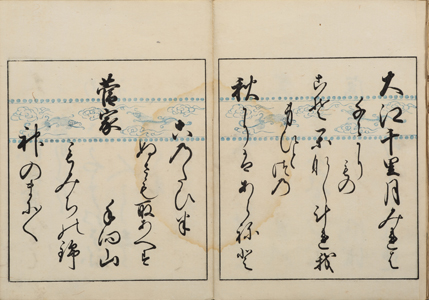 大江千里月みれは
ちゝにもの
こそかなしけれ我
身ひとつの
秋にはあらねと
このたひは
ぬさも取あへす
菅家
手向山
もみちの錦
神のまに〱